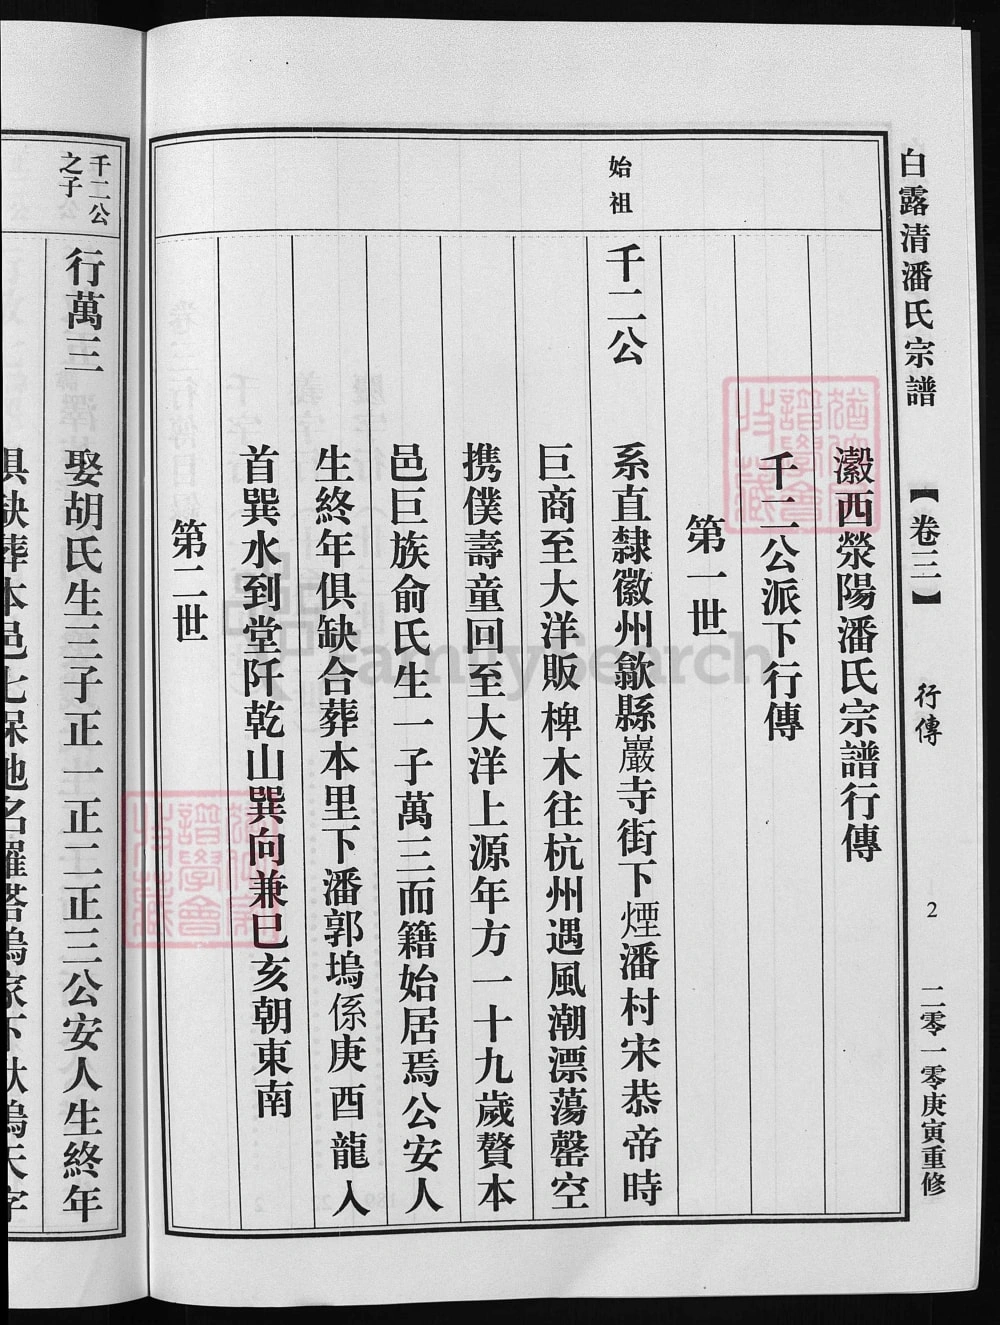 白露清潘氏宗譜 【卷三】 行傳 2 二零一零庚寅重修
瀫西滎陽潘氏宗譜行傳
千二公派下行傳
第一世
始祖 千二公 系直隸徽州歙縣巖寺街下煙潘村宋恭帝時
巨商至大洋販椑木往杭州遇風潮漂蕩罄空
携僕壽童回至大洋上源年方一十九歲贅本
邑巨族俞氏生一子萬三而籍始居焉公安人
生終年俱缺合葬本里下潘郭塢係庚酉龍入
首巽水到堂阡乾山巽向兼巳亥朝東南
第二世
千二公之子 行萬三 娶胡氏生三子正一正二正三公安人生終年
俱缺葬本邑七保地名羅塔塢家下 塢天字
FamilySearch